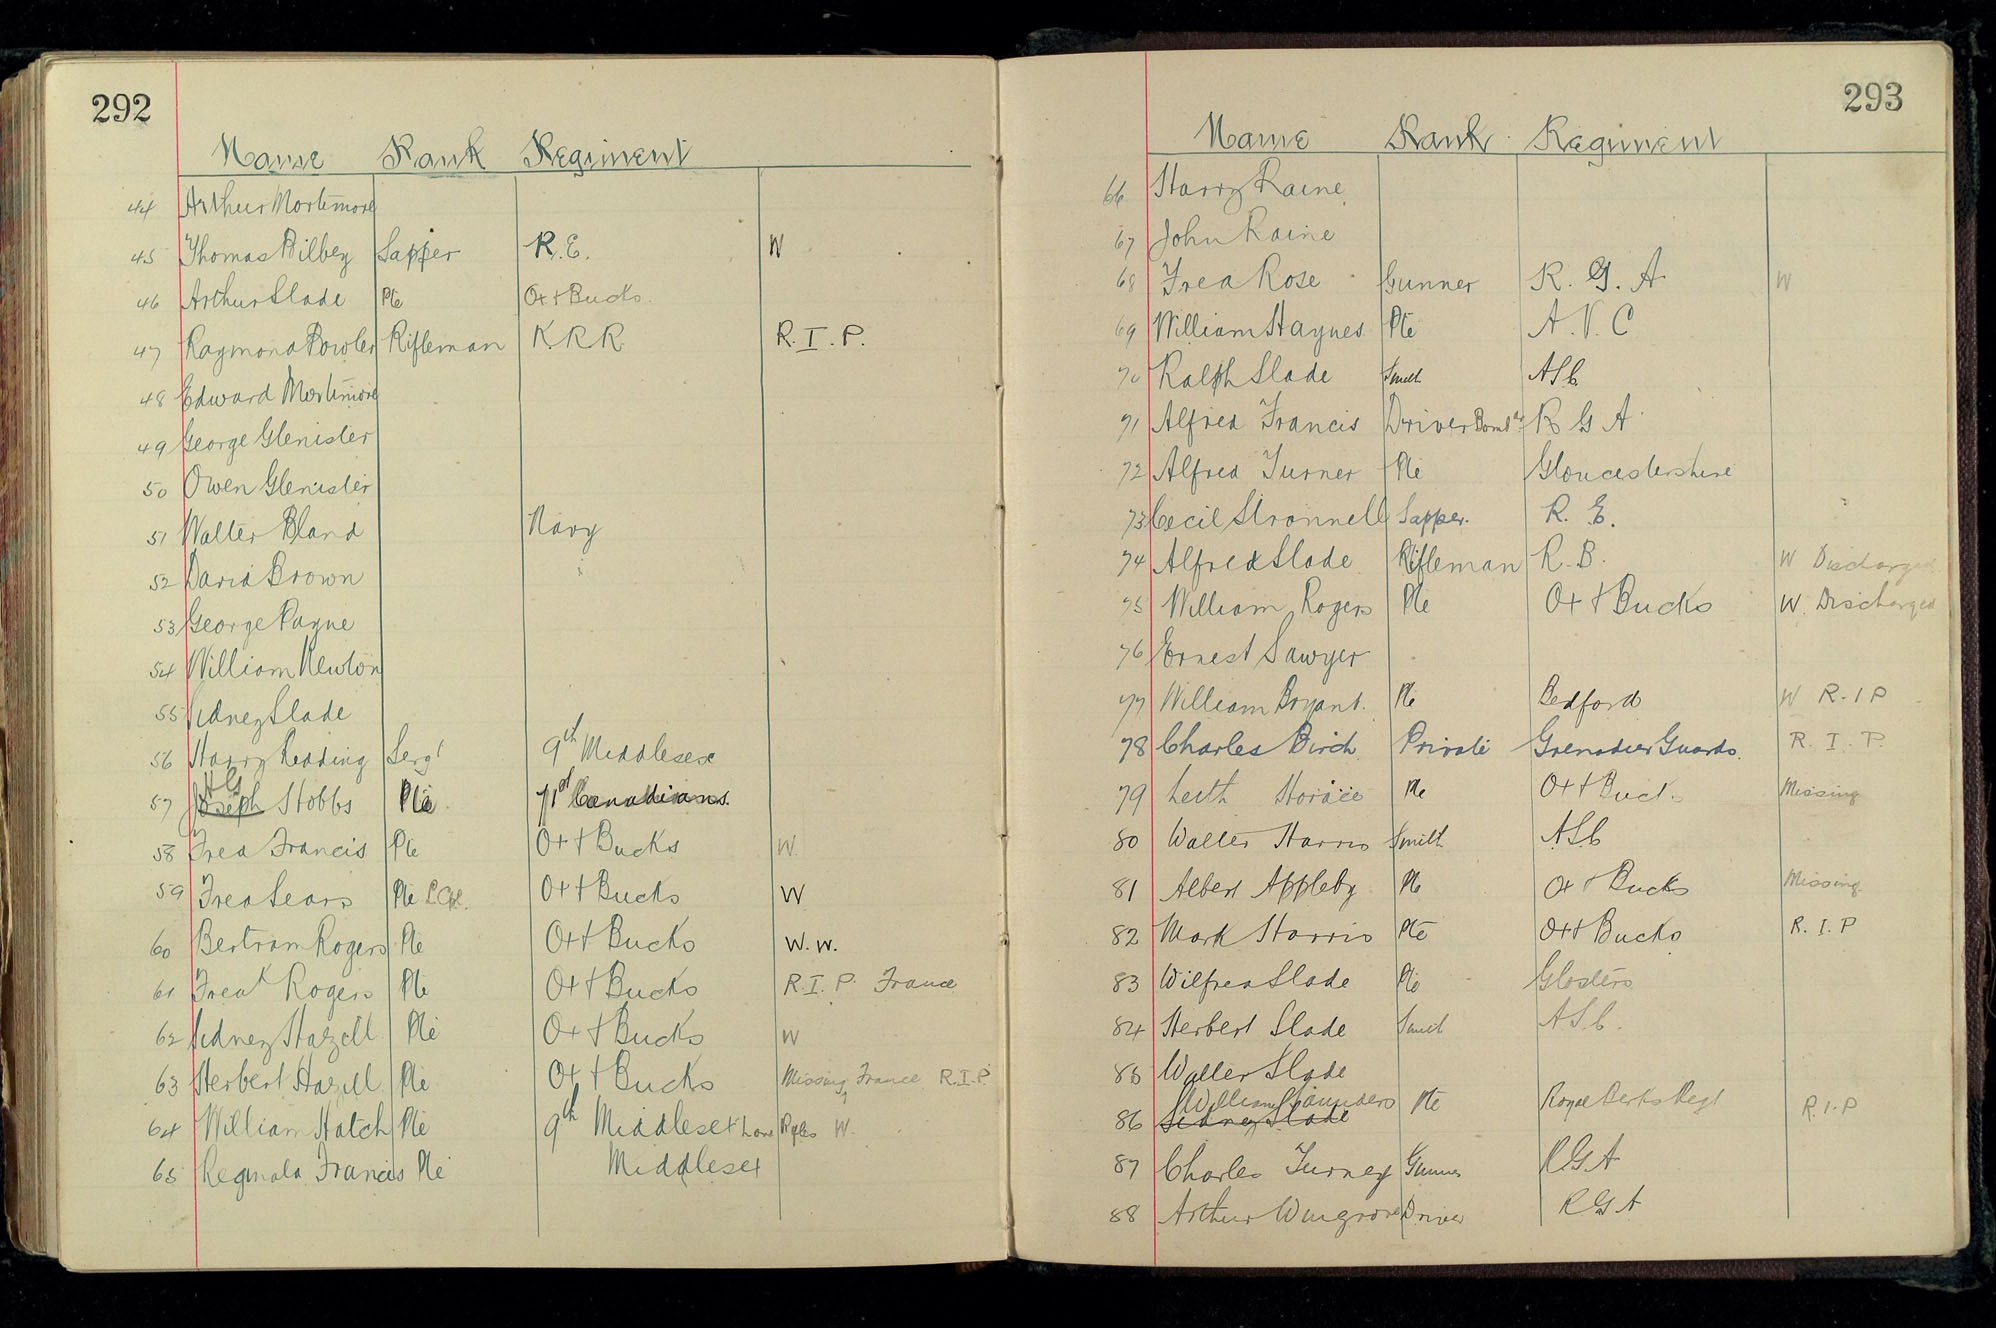 292
Name Rank Regiment
44 Arthur Mortimore
45 Thomas Pilbey Sapper R.E. W
46 Arthur Slade Pte Ox + Bucks.
47 Raymond Fowler Rifleman K.R.R. R.I.P.
48 Edward Mortimore
49 George Glenister
50 Owen Glenister
51 Walter Bland Navy
52 David Brown
53 George Payne
54 William Newton
55 Sidney Slade
56 Harry Reading Sergt 9th Middlesex
57 Joseph Stobbs Pte 71st Canadians.
58 Fred Francis Pte Ox + Bucks W
59 Fred Sears Pte L.Cpl. Ox + Bucks W
60 Bertram Rogers Pte Ox + Bucks W.W.
61 Fredk Rogers Pte Ox + Bucks R.I.P. France
62 Sidney Hazell Pte Ox + Bucks W
63 Herbert Hazell Pte Ox + Bucks Missing, France R.I.P.
64 William Hatch Pte 9th Middlesex W.
65 Reginald Francis Pte Middlesex
293
Name Rank Regiment
66 Harry Raine
67 John Raine
68 Fred Rose Gunner R.G.A. W
69 William Haynes Pte A.V.C
70 Ralph Slade Smith ASC
71 Alfred Francis Driver Bombdr R G A
72 Alfred Turner Pte Gloucestershire
73 Cecil Stronnell Sapper. R.E.
74 Alfred Slade Rifleman R.B. W Discharged
75 William Rogers Pte Ox + Bucks W. Discharged
76 Ernest Sawyer
77 William Bryant. Pte Bedford W R.I.P
78 Charles Birch Private Grenadier Guards. R.I.P.
79 Leith Horace Pte Ox + Bucks Missing
80 Walter Harris Smith ASC
81 Albert Appleby Pte Ox + Bucks Missing
82 Mark Harris Pte Ox + Bucks R.I.P
83 Wilfred Slade Pte Glosters
84 Herbert Slade Smith A.S.C.
85 Walter Slade
William Saunders Pte Royal Berks Regt R.I.P
86 Sidney Slade
87 Charles Turney Gunner RGA
88 Arthur Wingrove Driver RGA